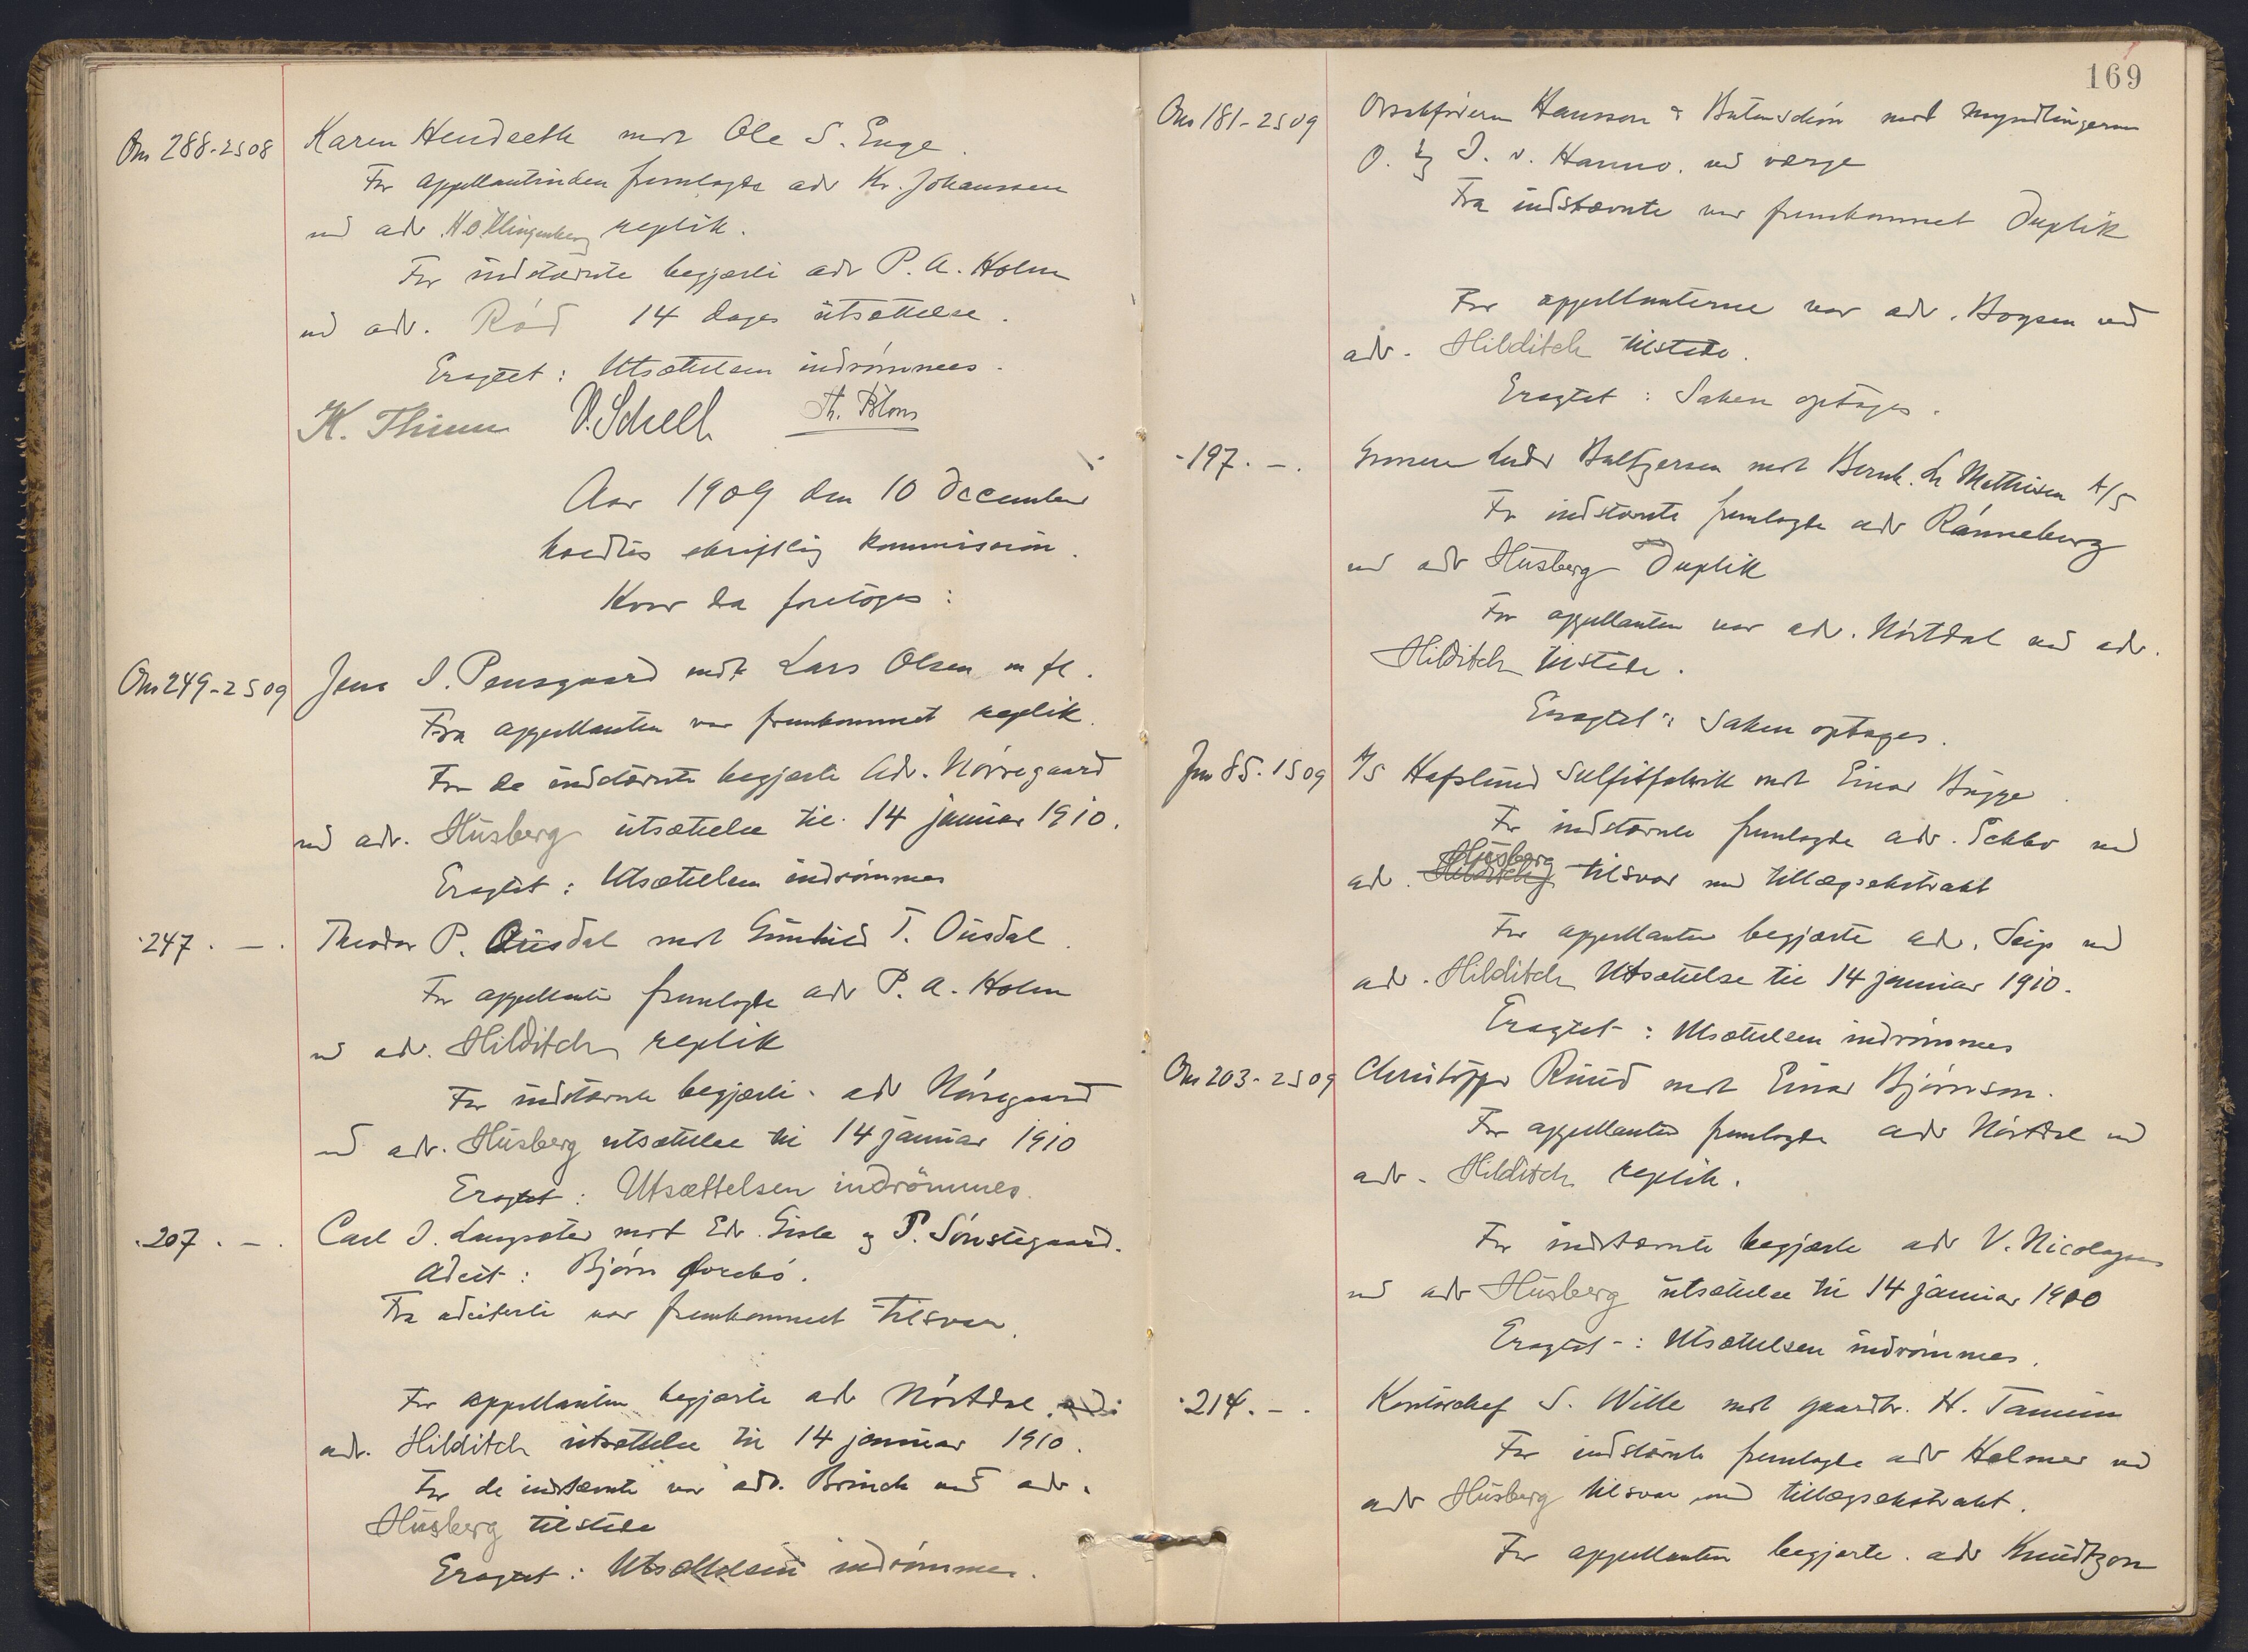 Om 288-2S08 Karen Hendseth mot Ole S. Enge.
For appellantinden fremlagde adv Kr. Johanssen
ved adv. H.O. Klingenberg replik.
For indstævnte begjærte adv P. A. Holm
ved adv. Röd 14 dages utsættelse.
Eragtet: Utsættelsen indrømmes.
K. Thinn V. Schell Th. Blom
Aar 1909 den 10 december
holdtes skriftlig kommission.
Hvor da foretoges:
Om 249-2S09 Jens I. Pensgaard mot Lars Olsen m fl.
Fra appellanten var fremkommet replik.
For de indstævnte begjærte adv. Nørregaard
ved adv. Husberg utsættelse til 14 januar 1910.
Eragtet: Utsættelsen indrømmes
- 247. - . Theodor P. Ousdal mot Gunhild T. Ousdal.
For appellanten fremlagde adv P. A. Holm
ved adv. Hilditch replik
For indstævnte begjærte adv Nørregaard
ved adv. Husberg utsættelse til 14 januar 1910
Eragtet: Utsættelsen indrömmes.
- 207. - . Carl I. Langsæter mot Edv. Gisle og P. Sønstegaard.
Adcit: Bjørn
Fra adciterte var fremkommet tilsvar.
For appellanten begjærte adv Nørtdal
adv. Hilditch utsættelse til 14 januar 1910.
For de indstævnte var adv. Brinch ved adv.
Husberg tilstede
Eragtet: Utsættelsen indrømmes.
169
Om 181-2S09 Orsakførerne Hansson & Butenschøn mot myndlingerne
O. og I. v. Hanno. ved værge
Fra indstævnte var fremkommet Duplik
For appellanterne var adv. Boysen ved
adv. Hilditch tilstede.
Eragtet: Saken optages.
- 197. - . Baltzersen mot Bernh. L. Mathisen A/S
For indstævnte fremlagde adv Ränneberg
ved adv Husberg Duplik
For appellanten var adv. Nørtdal ved adv.
Hilditch tilstede.
Eragtet: Saken optages.
Jm 85. 1S09 A/S Hafslund Sulfitfabrik mot Einar Bugge.
For indstævnte fremlagde adv. Schbr ved
Husberg
adv. Hilditch tilsvar med tillægsekstrakt
For appellanten begjærte adv. Seip ved
adv. Hilditch Utsættelse til 14 januar 1910.
Eragtet: Utsættelsen indrømmes
Om 203-2S09 Christoffer Ruud mot Einar Bjørnson.
For appellanten fremlagde adv Nørtdal ved
adv. Hilditch replik.
For indstævnte begjærte adv V. Nicolaysen
ved adv Husberg utsættelse til 14 januar 1910
Eragtet: Utsættelsen indrømmes.
- 214. - . Kontorchef S. Wille mot gaardbr. H. Tannum
For indstævnte fremlagde adv Holmer ved
adv Husberg tilsvar med tillægsekstrakt.
For appellanten begjærte adv Knudtzon